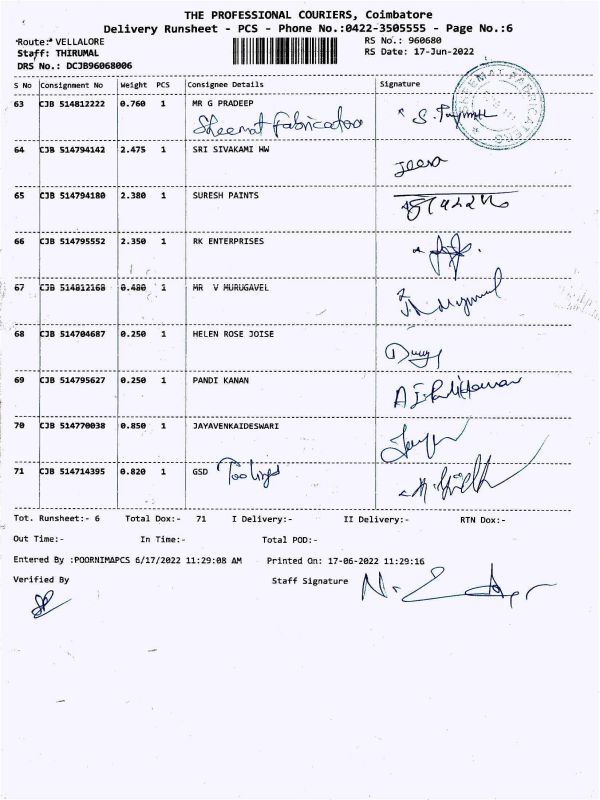 THE PROFESSIONAL COURIERS, Coimbatore
Delivery Runsheet - PCS - Phone No.:0422-3505555 - Page No.:6
Route:* VELLALORE
RS No.: 960680
Staff: THIRUMAL
RS Date: 17-Jun-2022
DRS No.: DCJB96068006
S No Consignment No Weight PCS Consignee Details Signature
63 CJB 514812222 0.760 1 MR G PRADEEP
Sheemat Fabricators
64 CJB 514794142 2.475 1 SRI SIVAKAMI HW
65 CJB 514794180 2.380 1 SURESH PAINTS
66 CJB 514795552 2.350 1 RK ENTERPRISES
67 CJB 514812168 0.480 1 MR V MURUGAVEL
68 CJB 514704687 0.250 1 HELEN ROSE JOISE
69 CJB 514795627 0.250 1 PANDI KANAN
70 CJB 514770038 0.850 1 JAYAVENKAIDESWARI
71 CJB 514714395 0.820 1 GSD Toolings
Tot. Runsheet:- 6 Total Dox:- 71 I Delivery:- II Delivery:- RTN Dox:-
Out Time:- In Time:- Total POD:-
Entered By :POORNIMAPCS 6/17/2022 11:29:08 AM Printed On: 17-06-2022 11:29:16
Verified By Staff Signature